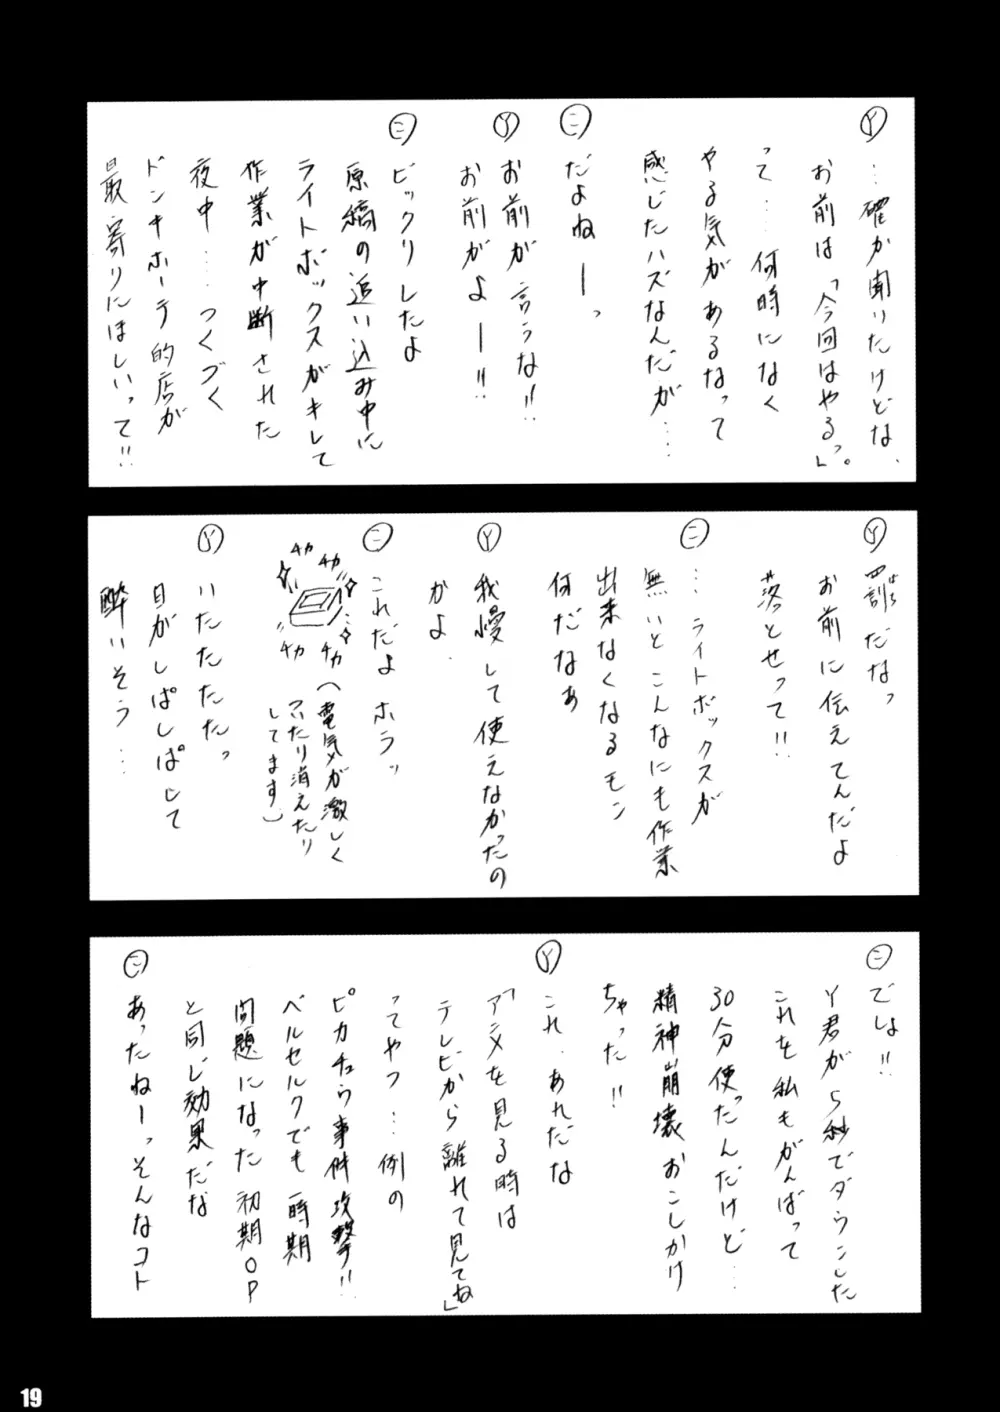 Ⓨ …確か聞いたけどな、
お前は「今回はやるっ」。
って…何時になく
やる気があるなって
感じたハズなんだが……
㊁ だよねーっ
Ⓨ お前が言うな!!
お前がよー!!
㊁ ビックリしたよ
原稿の追い込み中に
ライトボックスがキレて
作業が中断された
夜中…つくづく
ドンキホーテ的店が
最寄りにほしいって!!
Ⓨ 罰だなっ
ばち
お前に伝えてんだよ
落とせって!!
㊁ …ライトボックスが
無いとこんなにも作業
出来なくなるモン
何だなぁ
Ⓨ 我慢して使えなかったの
かよ.
㊁ これだよ ホラッ
チカ
チカ
チカ
チカ
(電気が激しく
ついたり消えたり
してます)
Ⓨ いたたたたっ
目がしぱしぱして
酔いそう…
㊁ でしょ!!
Y君が5秒でダウンした
これを私もがんばって
30分使ったんだけど…
精神崩壊おこしかけ
ちゃった!!
Ⓨ これ、あれだな
「アニメを見る時は
テレビから離れて見てね」
ってやつ…例の
ピカチュウ事件攻撃!!
ベルセルクでも一時期
問題になった初期OP
と同じ効果だな
㊁ あったねーっそんなコト
19